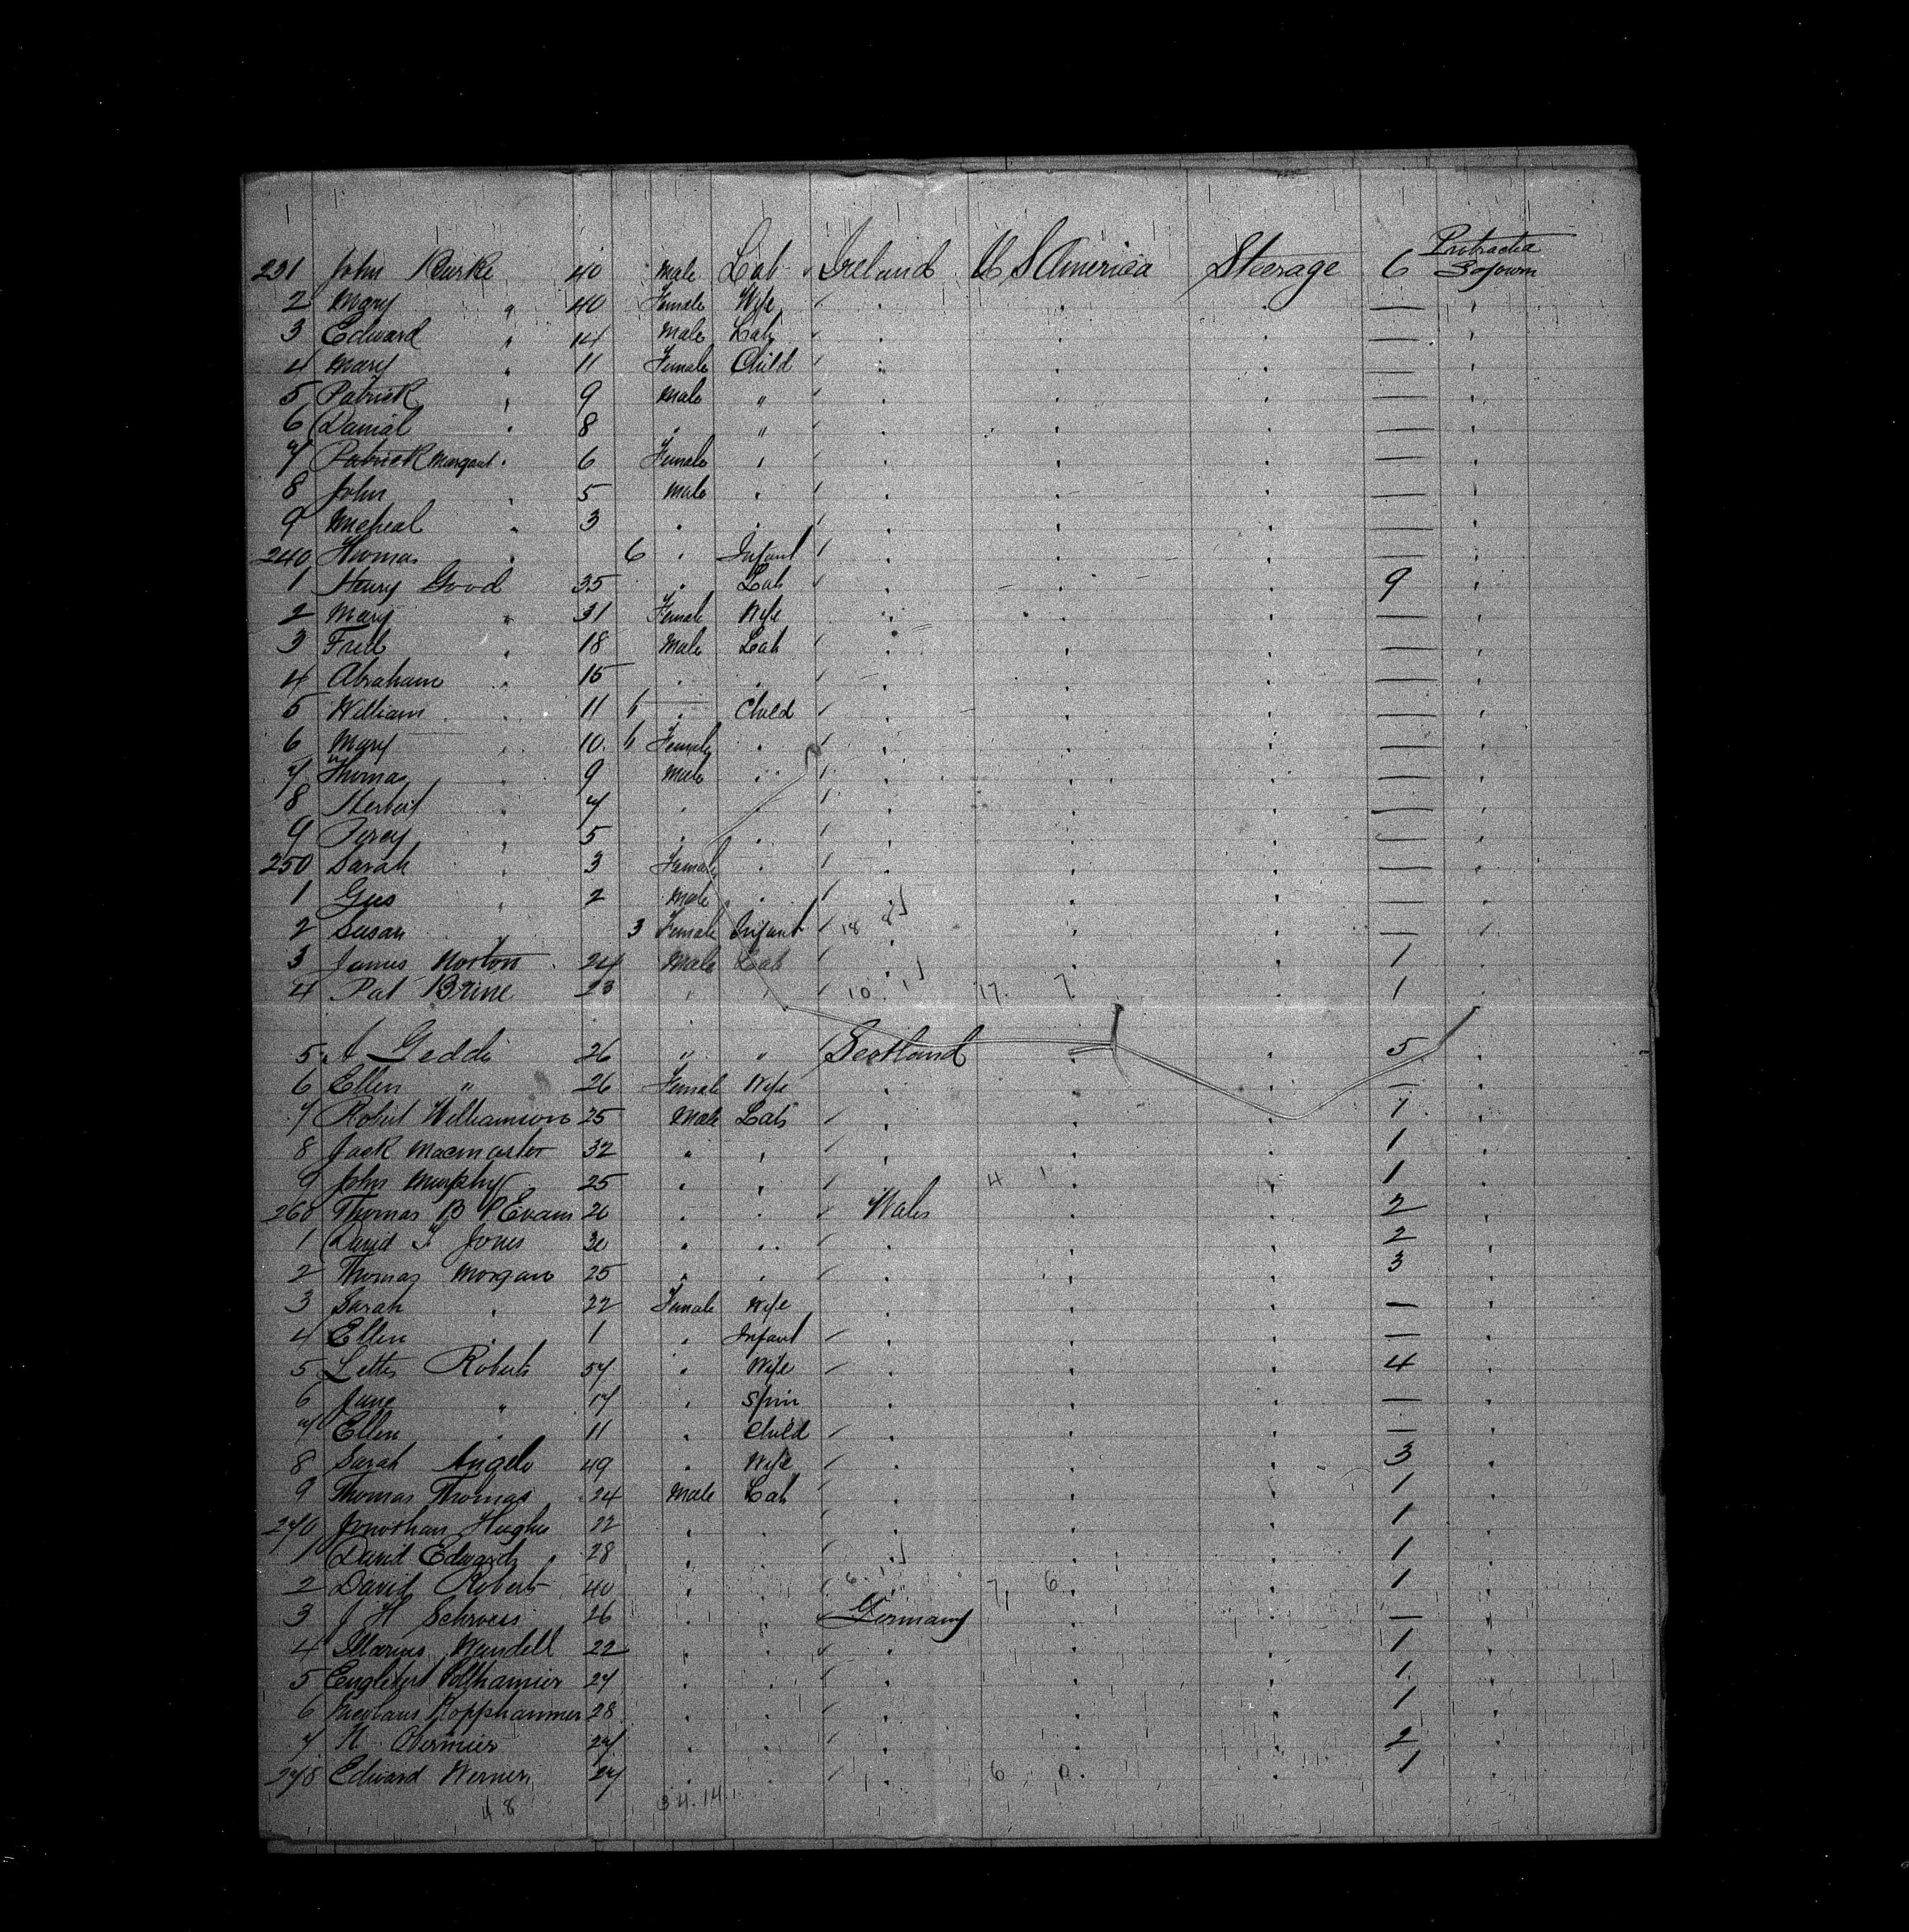 231 John Burke 40 Male Lab Ireland U S America Steerage 6 Protracted Sojourn
2 Mary " 40 Female Wife —
3 Edward " 14 Male Lab —
4 Mary " 11 Female Child —
5 Patrick " 9 Male " —
6 Danial " 8 " " —
7 Patrick Margaret " 6 Female " —
8 John " 5 Male " —
9 Micheal " 3 " " —
240 Thomas " 6 " Infant —
1 Henry Good 35 " Lab 9
2 Mary " 31 Female Wife —
3 Fred " 18 Male Lab —
4 Abraham " 15 " " —
5 William " 11 " Child —
6 Mary " 10 Female " —
7 Thomas " 9 Male " —
8 Herbert " 7 " " —
9 Percy " 5 " " —
250 Sarah " 3 Female " —
1 Gus " 2 Male " —
2 Susan " 3 Female Infant 18 —
3 James Norton 24 Male Lab 1
4 Pat Brine 23 " " 10 1 17 7 1
5 A Geddi 26 " " Scotland 5
6 Ellen " 26 Female Wife —
7 Robert Williamson 25 Male Lab 1
8 Jack Macmaster 32 " " 1
9 John Murphy 25 " " 4 1 1
260 Thomas B P Evans 20 " " Wales 2
1 David J Jones 30 " " 2
2 Thomas Morgan 25 " " 3
3 Sarah " 22 Female Wife —
4 Ellen " 1 " Infant —
5 Roberts 57 " Wife 4
6 Jane " 17 " Spin —
7 Ellen " 11 " Child —
8 Sarah Angelo 49 " Wife 3
9 Thomas Thomas 24 Male Lab 1
270 Jonothan Hughes 22 " " 1
1 David Edwards 28 " " 1
2 David Roberts 40 " " 6 1 7 6 1
3 J H 26 " " Germany —
4 Wendell 22 " " 1
5 27 " " 1
6 Nicolaus Kopphammer 28 " " 1
7 N Obermier 27 " " 2
278 Edward Werner 27 " " 6 0 1
48 34.14